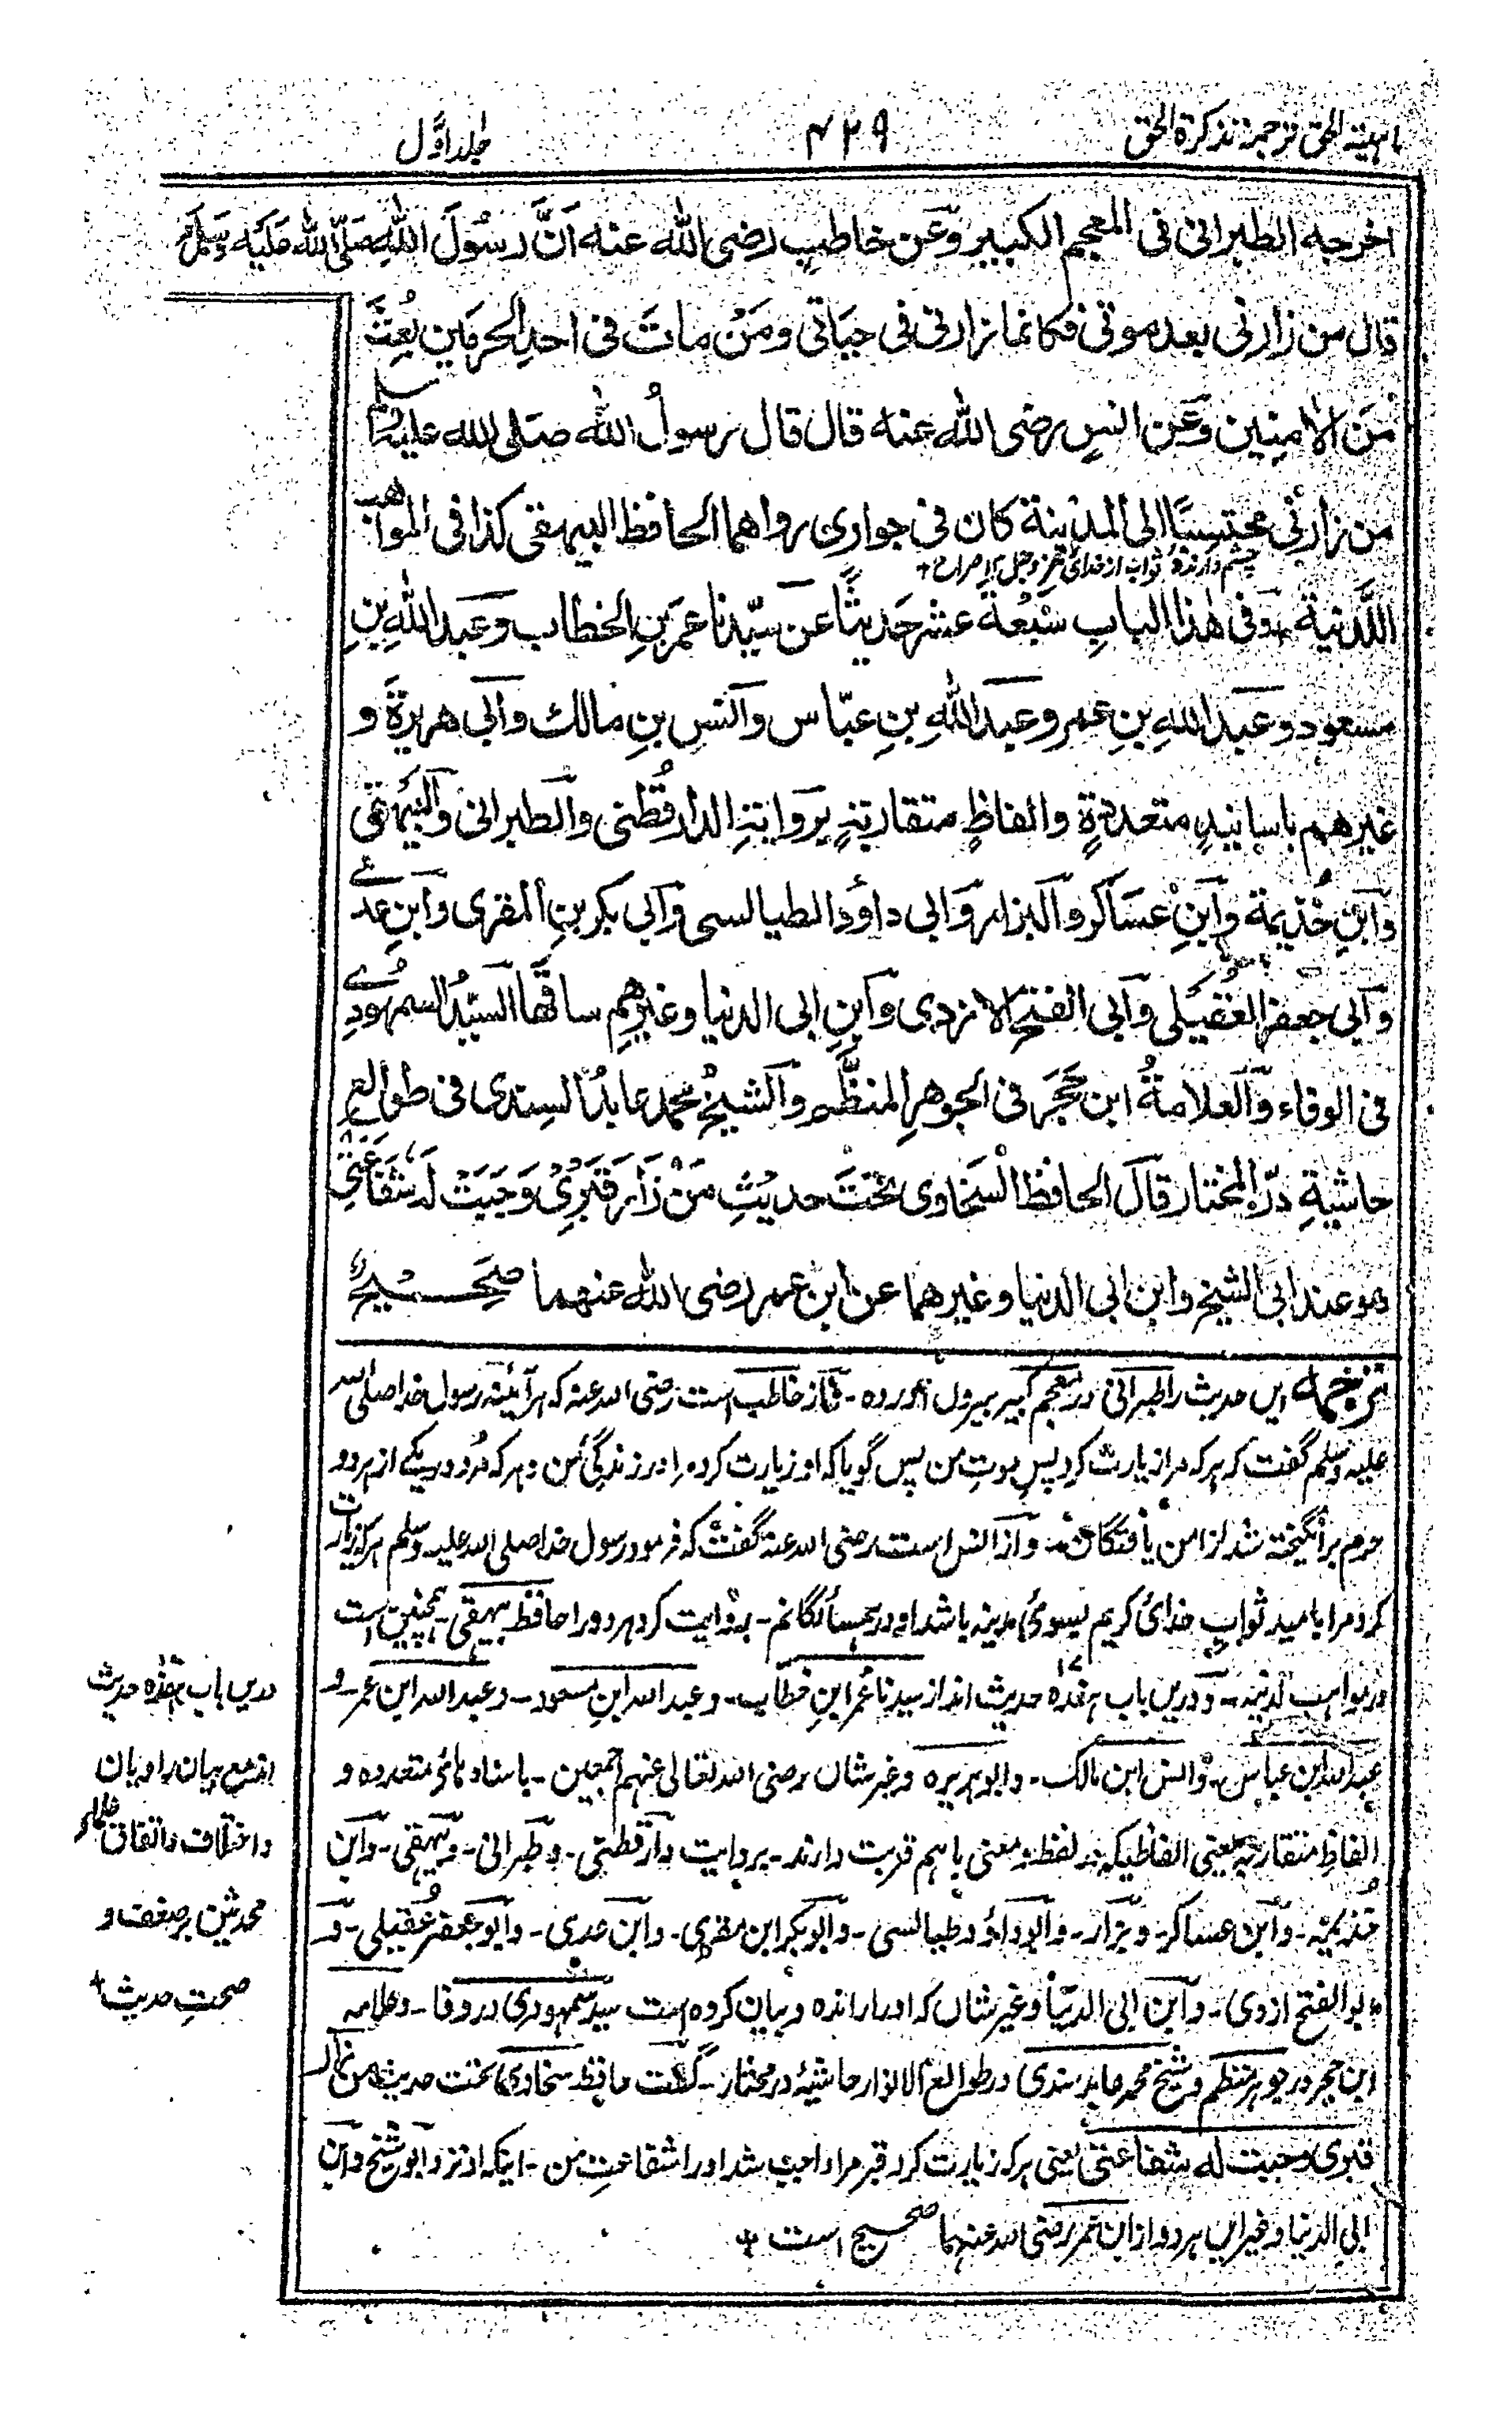 ترجمة تذكرة الحق
۴۲۹
جلد اوّل
اخرجه الطبرانى فى المعجم الكبير وَعَن خاطبٍ رضى الله عنه اَنَّ رسُولَ اللهِ صَلَّى الله عَلَيه وسَلَّم
قال من زارنى بعد موتى فكانما زارنى فى حيَاتى ومَنْ ماتَ فى احدِ الحرمَين بُعِثَ
مِنَ الاٰمِنِين وعَن انسٍ رضى الله عنه قال قال رسولُ الله صَلى الله عليه وسلم
من زارنى محتسبًا الى المدينة كان فى جوارى رواهما الحافظ البيهقى كذا فى المواهب
چشم دارنده ثواب از خدائ عز وجل ۱۲ صراح
اللَّدنية وفى هٰذا البابِ سَبْعةَ عشر حَديثًا عن سيّدنا عمرَ بنِ الخطاب وعَبد اللهِ بنِ
مسعود وعَبد اللهِ بنِ عمر وعبد اللهِ بنِ عبّاس واَنس بنِ مالك واَبى هريرةَ و
غيرهم باسانيدٍ متعددةٍ والفاظٍ متقاربةٍ بروايةِ الدارقُطنى والطبرانى والبَيْهَقى
وابنِ خُذيمة وابنِ عَسَاكر والبزار وَابى داوٗد الطيالسى وَابى بكر بنِ المقرى وابن عدے
وَابى جعفر العُقَيلى وَابى الفتح الازدى وابنِ ابى الدنيا وغيرهِم ساقَها السيّدُ السمهُودے
فى الوفاء والعلامةُ ابن حَجَر فى الجوهرِ المنظَّم والشيخُ محمد عابدُ السِندى فى طوالع
حاشيةِ درّ المختار قالَ الحافظ السَّخاوى تحتَ حديثِ مَنْ زَارَ قَبْرِىْ وَجَبَتْ لَهٗ شَفَاعَتِىْ
وهو عند ابى الشيخ وابن ابى الدنيا وغيرهما عن ابن عمر رضى الله عنهما صحيحٌ
ترجمه ایں حدیث را طبرانی در معجم کبیر بیرون آورده - و از خاطب است رضی الله عنه که هر آئینه رسول خدا صلی الله
علیه وسلم گفت که هر که مرا زیارت کرد پس موتِ من پس گویا که او زیارت کرد مرا در زندگئ من و هر که مُرد در یکے از هر دو
حرم برانگیخته شد از امن یافتگان - و از انس است رضی الله عنه گفت که فرمود رسول خدا صلی الله علیه وسلم هر که زیارت
کرد مرا بامید ثوابِ خدائ کریم بسوئ مدینه باشد او در همسائگانم - روایت کرد هر دو را حافظ بیهقی - همچنین است
در مواهب لدنیه - و دریں باب هفده ۱۷ حدیث اند از سیدنا عمر ابنِ خطاب - و عبد الله ابنِ مسعود - و عبد الله ابن عمر - و
عبد الله ابن عباس - و انس ابن مالک - و ابو هریره و غیر شاں رضی الله تعالی عنهم اجمعین - باسناد هائے متعدده و
الفاظِ متقاربه یعنی الفاظیکه در لفظ و معنی باهم قربت دارند - بروایت دارقطنی - و طبرانی - و بیهقی - و ابن
خذیمه - و ابن عساکر - و بزار - و ابو داؤد طیالسی - و ابوبکر ابن مقری - و ابن عدی - و ابو جعفر عُقیلی - و
ابو الفتح ازدی - و ابن ابی الدنیا و غیر شاں که اورا رانده و بیان کرده است سید سمهودی در وفا - و علامه
ابن حجر در جوهر منظم و شیخ محمد عابد سندی در طوالع الانوار حاشیهٔ در مختار - گفت حافظ سخاوی تحت حدیث من زار
قبری وجبت له شفاعتی یعنی هر که زیارت کرد قبر مرا واجب شد او را شفاعتِ من - اینکه از نزد ابو شیخ و ابن
ابی الدنیا و غیر ایں هر دو از ابن عمر رضی الله عنهما صحیح است
دریں باب هفده حدیث
اند مع بیان راویان
و اختلاف و اتفاق علماء
محدثین بر ضعف و
صحتِ حدیث